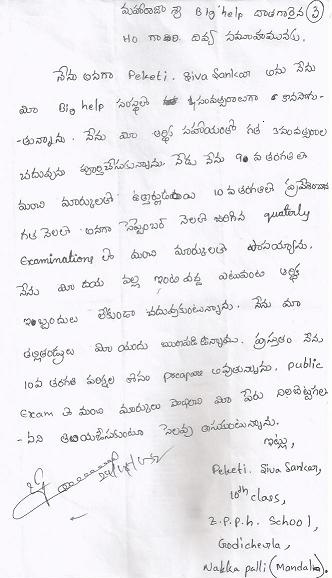 మహారాజా శ్రీ Big'help దాతగారైన ③
HO గారి దివ్య సమూహమునకు.
నేను అనగా Peketi. Siva Sankar అను నేను
మీ Big help సంస్థలో సంవత్సరాలుగా కొనసాగు-
-తున్నాను. నేను మీ ఆర్థిక సహాయంతో గత 3సంవత్సరాల
చదువును పూర్తిచేసుకున్నాను. నేడు నేను 9వ తరగతి లో
మంచి మార్కులతో ఉత్తీర్ణుడనయి 10వ తరగతిలో ప్రవేశించాను
గత నెలలో అనగా సెప్టెంబర్ నెలలో జరిగిన quaterly
Examinations లో మంచి మార్కులతో పాసయ్యాను.
నేను మీ దయ వల్ల ఇంటి వద్ద ఎటువంటి ఆర్థిక
ఇబ్బందులు లేకుండా చదువుకుంటున్నాను. నేను మా
తల్లిదండ్రులు మీ యందు ఋణపడి ఉన్నాము. ప్రస్తుతం నేను
10వ తరగతి పరీక్షల కోసం prepare అవుతున్నాను. public
Exam లో మంచి మార్కులు మీ పేరు నిలబెట్టగల
-నని తెలియజేసుకుంటూ సెలవు తీసుకుంటున్నాను.
ఇట్లు,
Peketi. Siva Sankar,
10th class,
Z.P.P.h. School,
Godicherla,
Nakka palli (Mandalam).